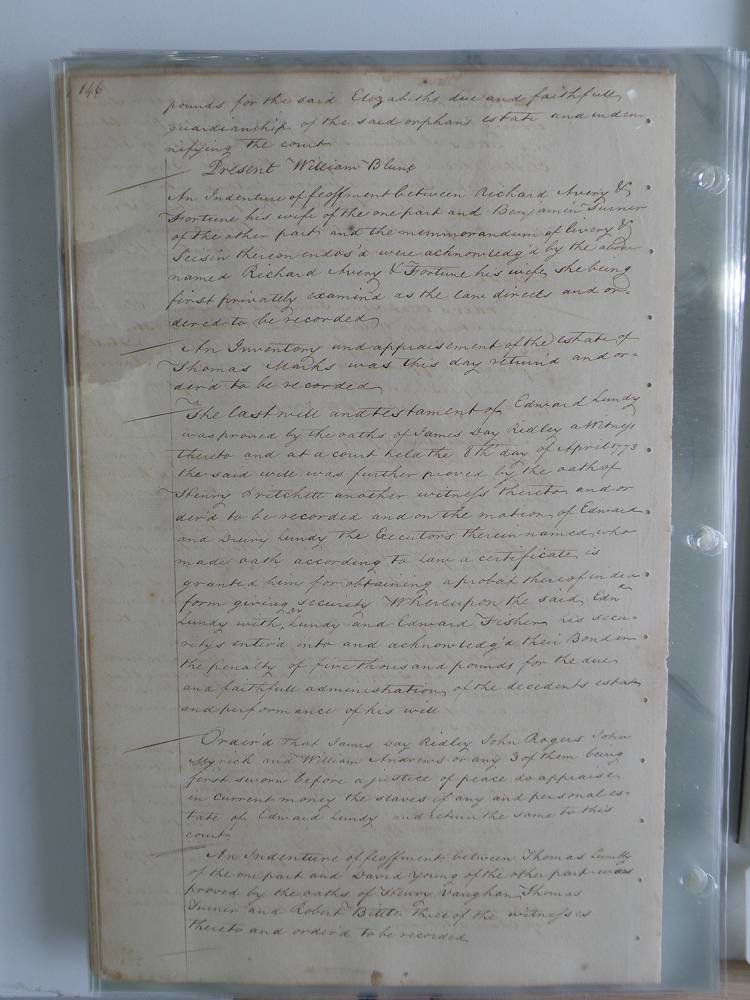 146
pounds for the said Elizabeths due and faithfull
guardianship of the said orphans estate and indem
nifying the court
Present William Blunt
An Indenture of feoffment between Richard Avery &
Fortune his wife of the one part and Benjamin Turner
of the other part and the memmorandum of livery &
Seisin thereon endors'd were acknowledg'd by the above
named Richard Avery & Fortune his wife, she being
first privately examind as the law directs and or=
dered to be recorded
An Inventory and appraisement of the estate of
Thomas Marks was this day return'd and or=
der'd to be recorded
The last will and testament of Edward Lundy
was proved by the oaths of James Day Ridley a Witness
thereto and at a court held the 8th day of April 1773
the said will was further proved by the oath of
Henry Pritchett another witness thereto and or
der'd to be recorded and on the motion of Edward
and Drury Lundy the Executors therein named, who
made oath according to Law a certificate is
granted him for obtaining a probat thereof in due
form giving security Whereupon the said Edwd
Lundy with Dr Lundy and Edward Fisher his secu=
ritys enter'd into and acknowledg'd their Bond in
the penalty of five thousand pounds for the due
and faithfull administration of the decedents estate
and performance of his will
Order'd that James Day Ridley John Rogers John
Myrick and William Andrews or any 3 of them being
first sworn before a justice of peace do appraise
in current money the slaves if any and personal es=
tate of Edward Lundy and return the same to this
court
An Indenture of feoffment between Thomas
of the one part and David Young of the other part was
proved by the oaths of Henry Vaughan Thomas
Turner and Robert Bittle three of the witnesses
thereto and order'd to be recorded